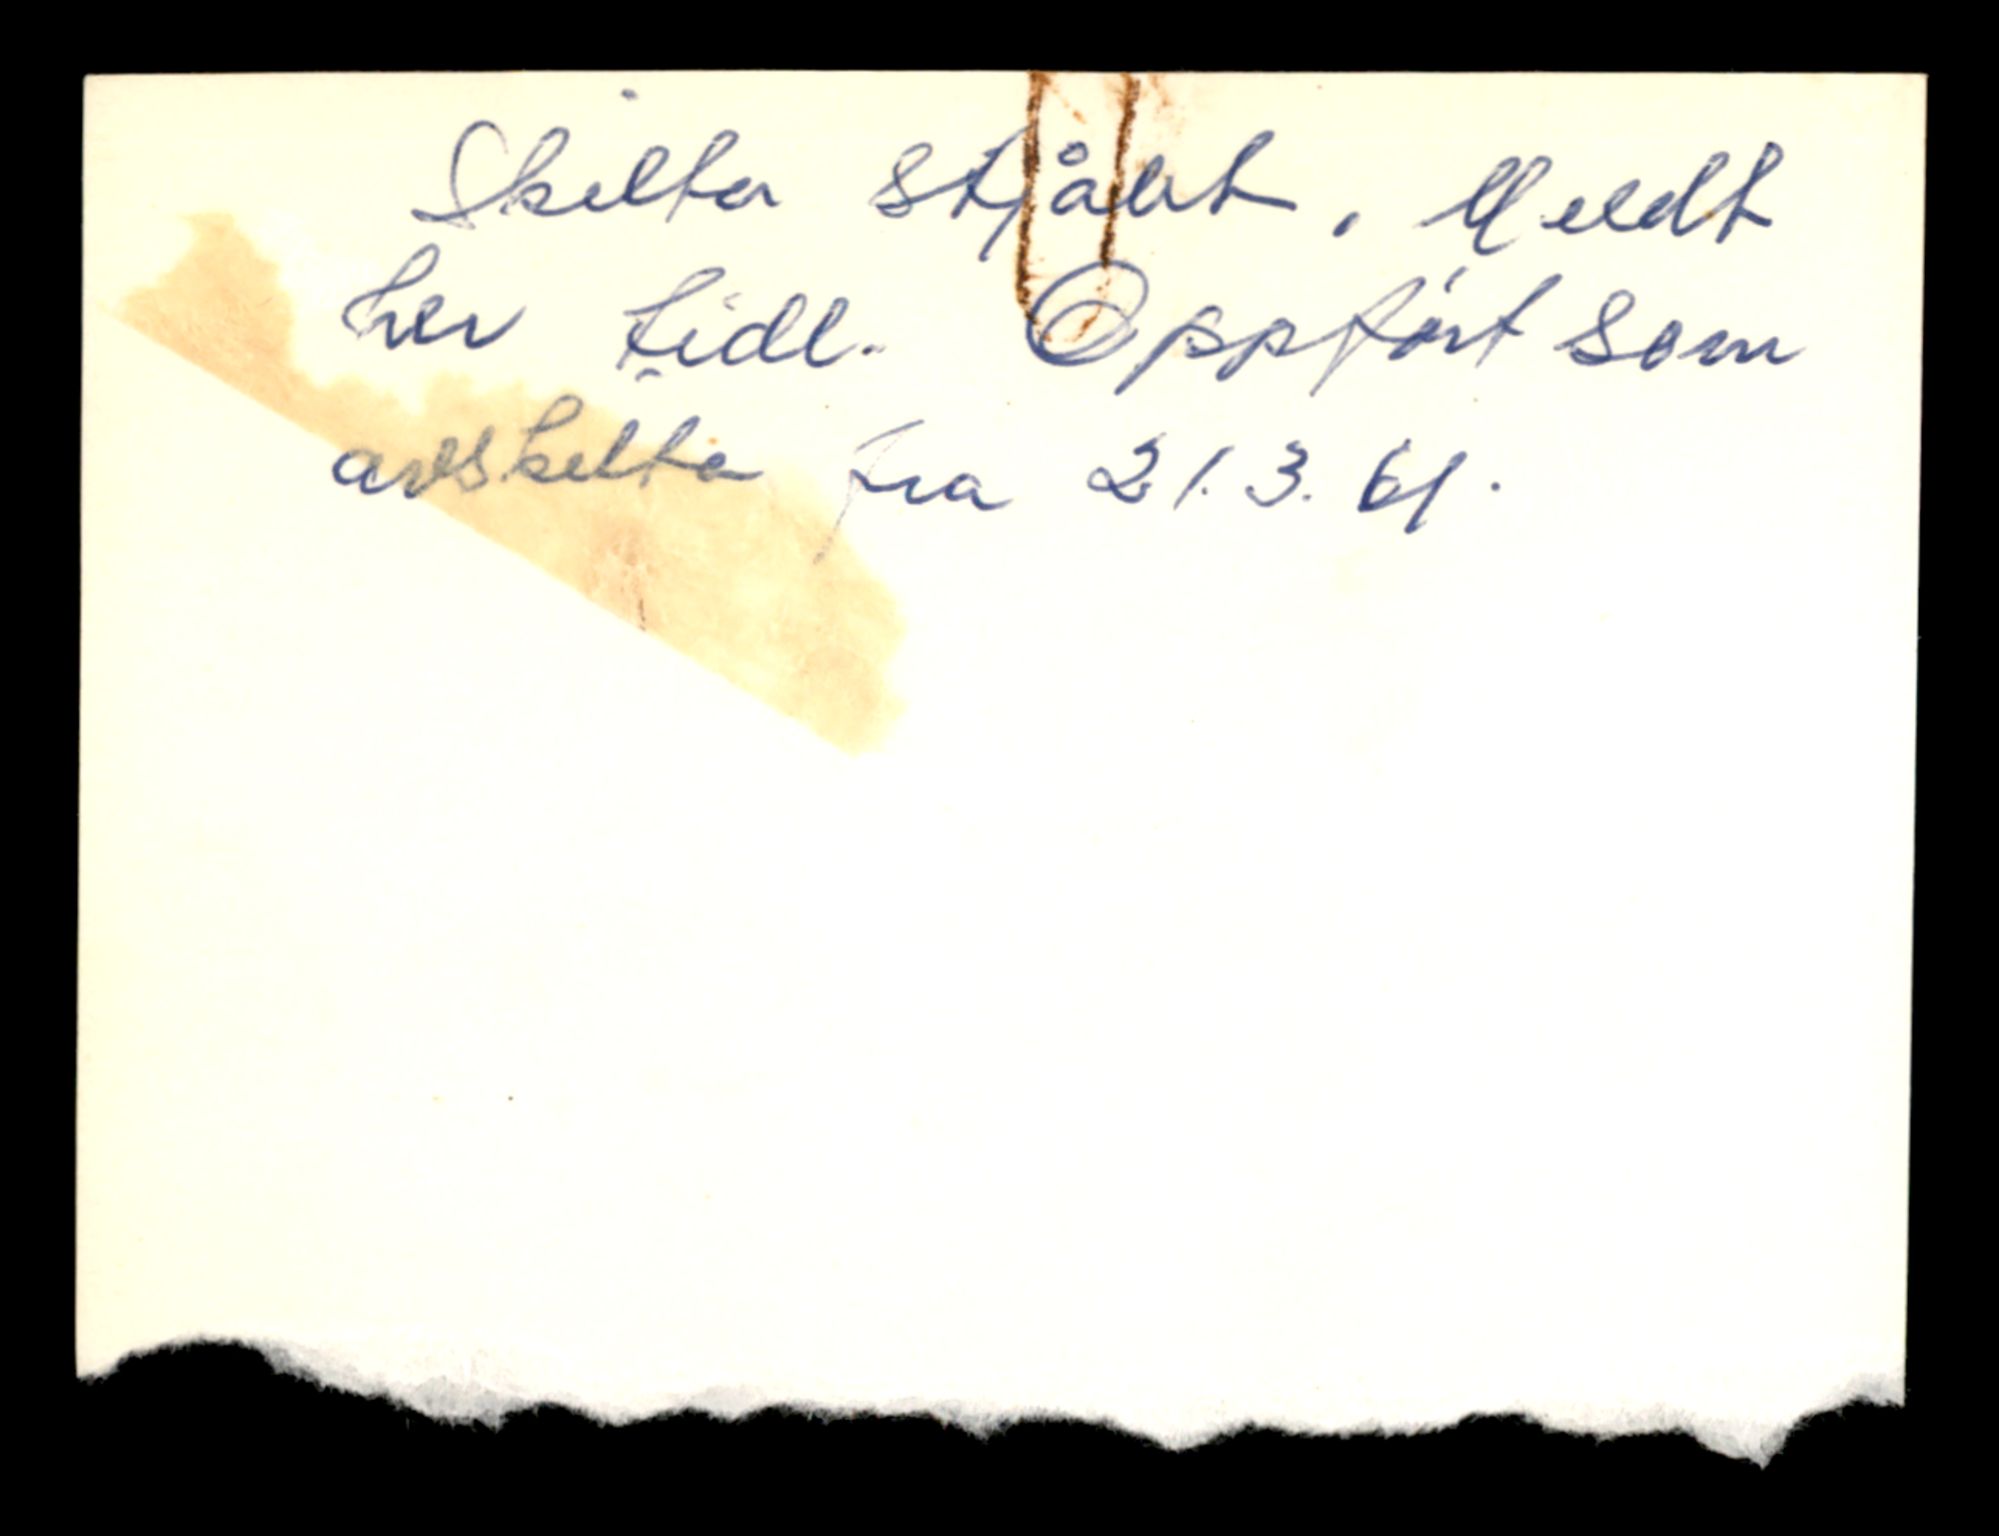 Skilta stjålet. Meldt
her tidl. Oppført som
avskilta fra 21.3.61.